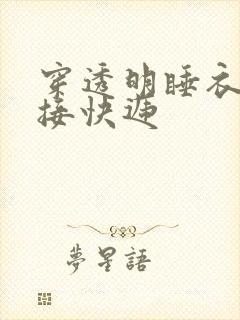 穿透明睡衣
接快递
夢星語